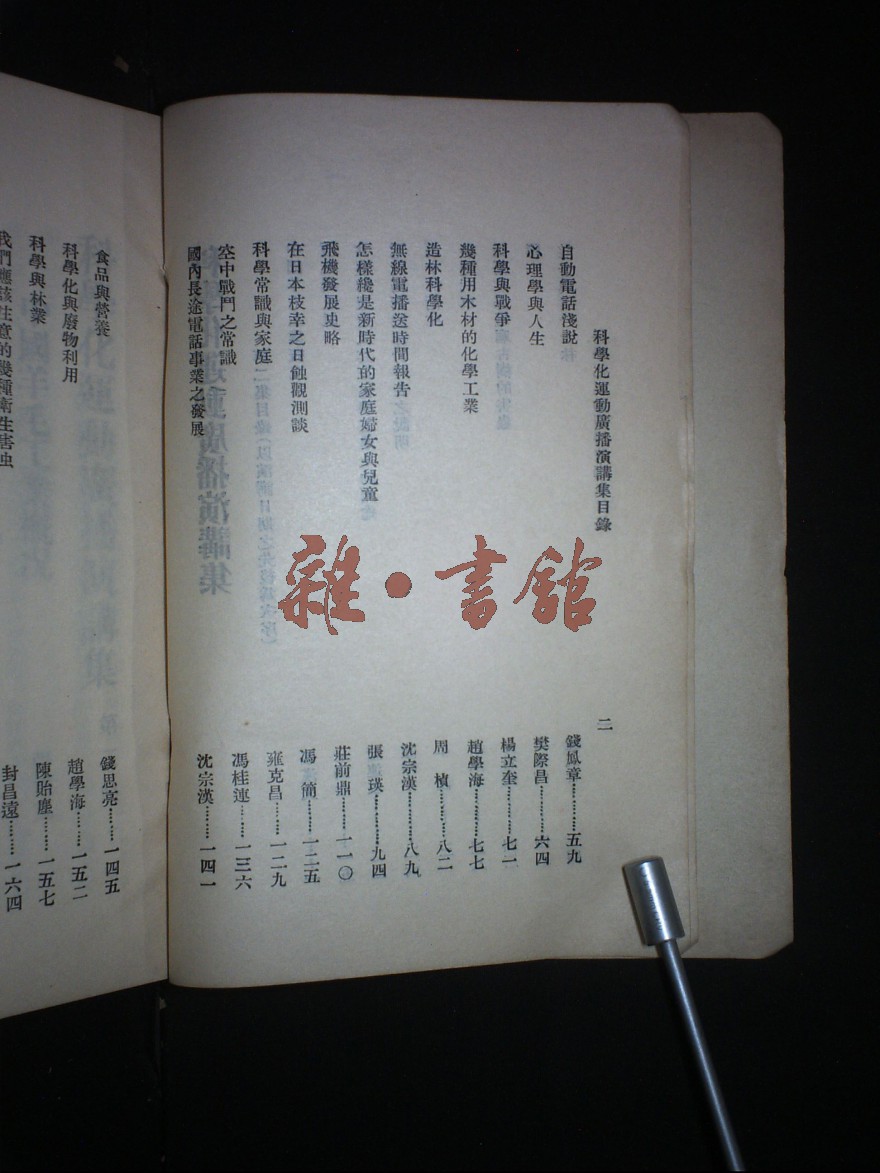 科學化運動廣播演講集目錄 二
自動電話淺說 錢鳳章…………五九
心理學與人生 樊際昌…………六四
科學與戰爭 楊立奎………七一
幾種用木材的化學工業 趙學海………七七
造林科學化 周楨………八二
無線電播送時間報告 沈宗漢………八九
怎樣纔是新時代的家庭婦女與兒童 張瑛…………九四
飛機發展史略 莊前鼎………一一〇
在日本枝幸之日蝕觀測談 馮簡………一二五
科學常識與家庭 雍克昌………一二九
空中戰鬥之常識 馮桂連………一三六
國內長途電話事業之發展 沈宗漢………一四一
食品與營養 錢思亮………一四五
科學化與廢物利用 趙學海………一五二
科學與林業 陳貽塵………一五七
我們應該注意的幾種衛生害虫 封昌遠………一六四
雜·書館